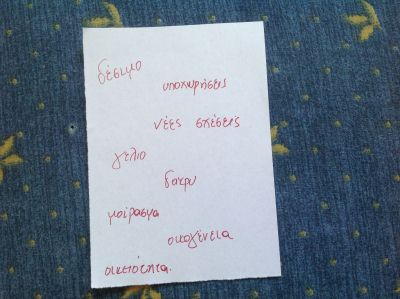 δέσιμο
υποχωρήσεις
νέες σχέσεις
γέλιο
δακρυ
μοίρασμα
οικογένεια
οικειότητα.